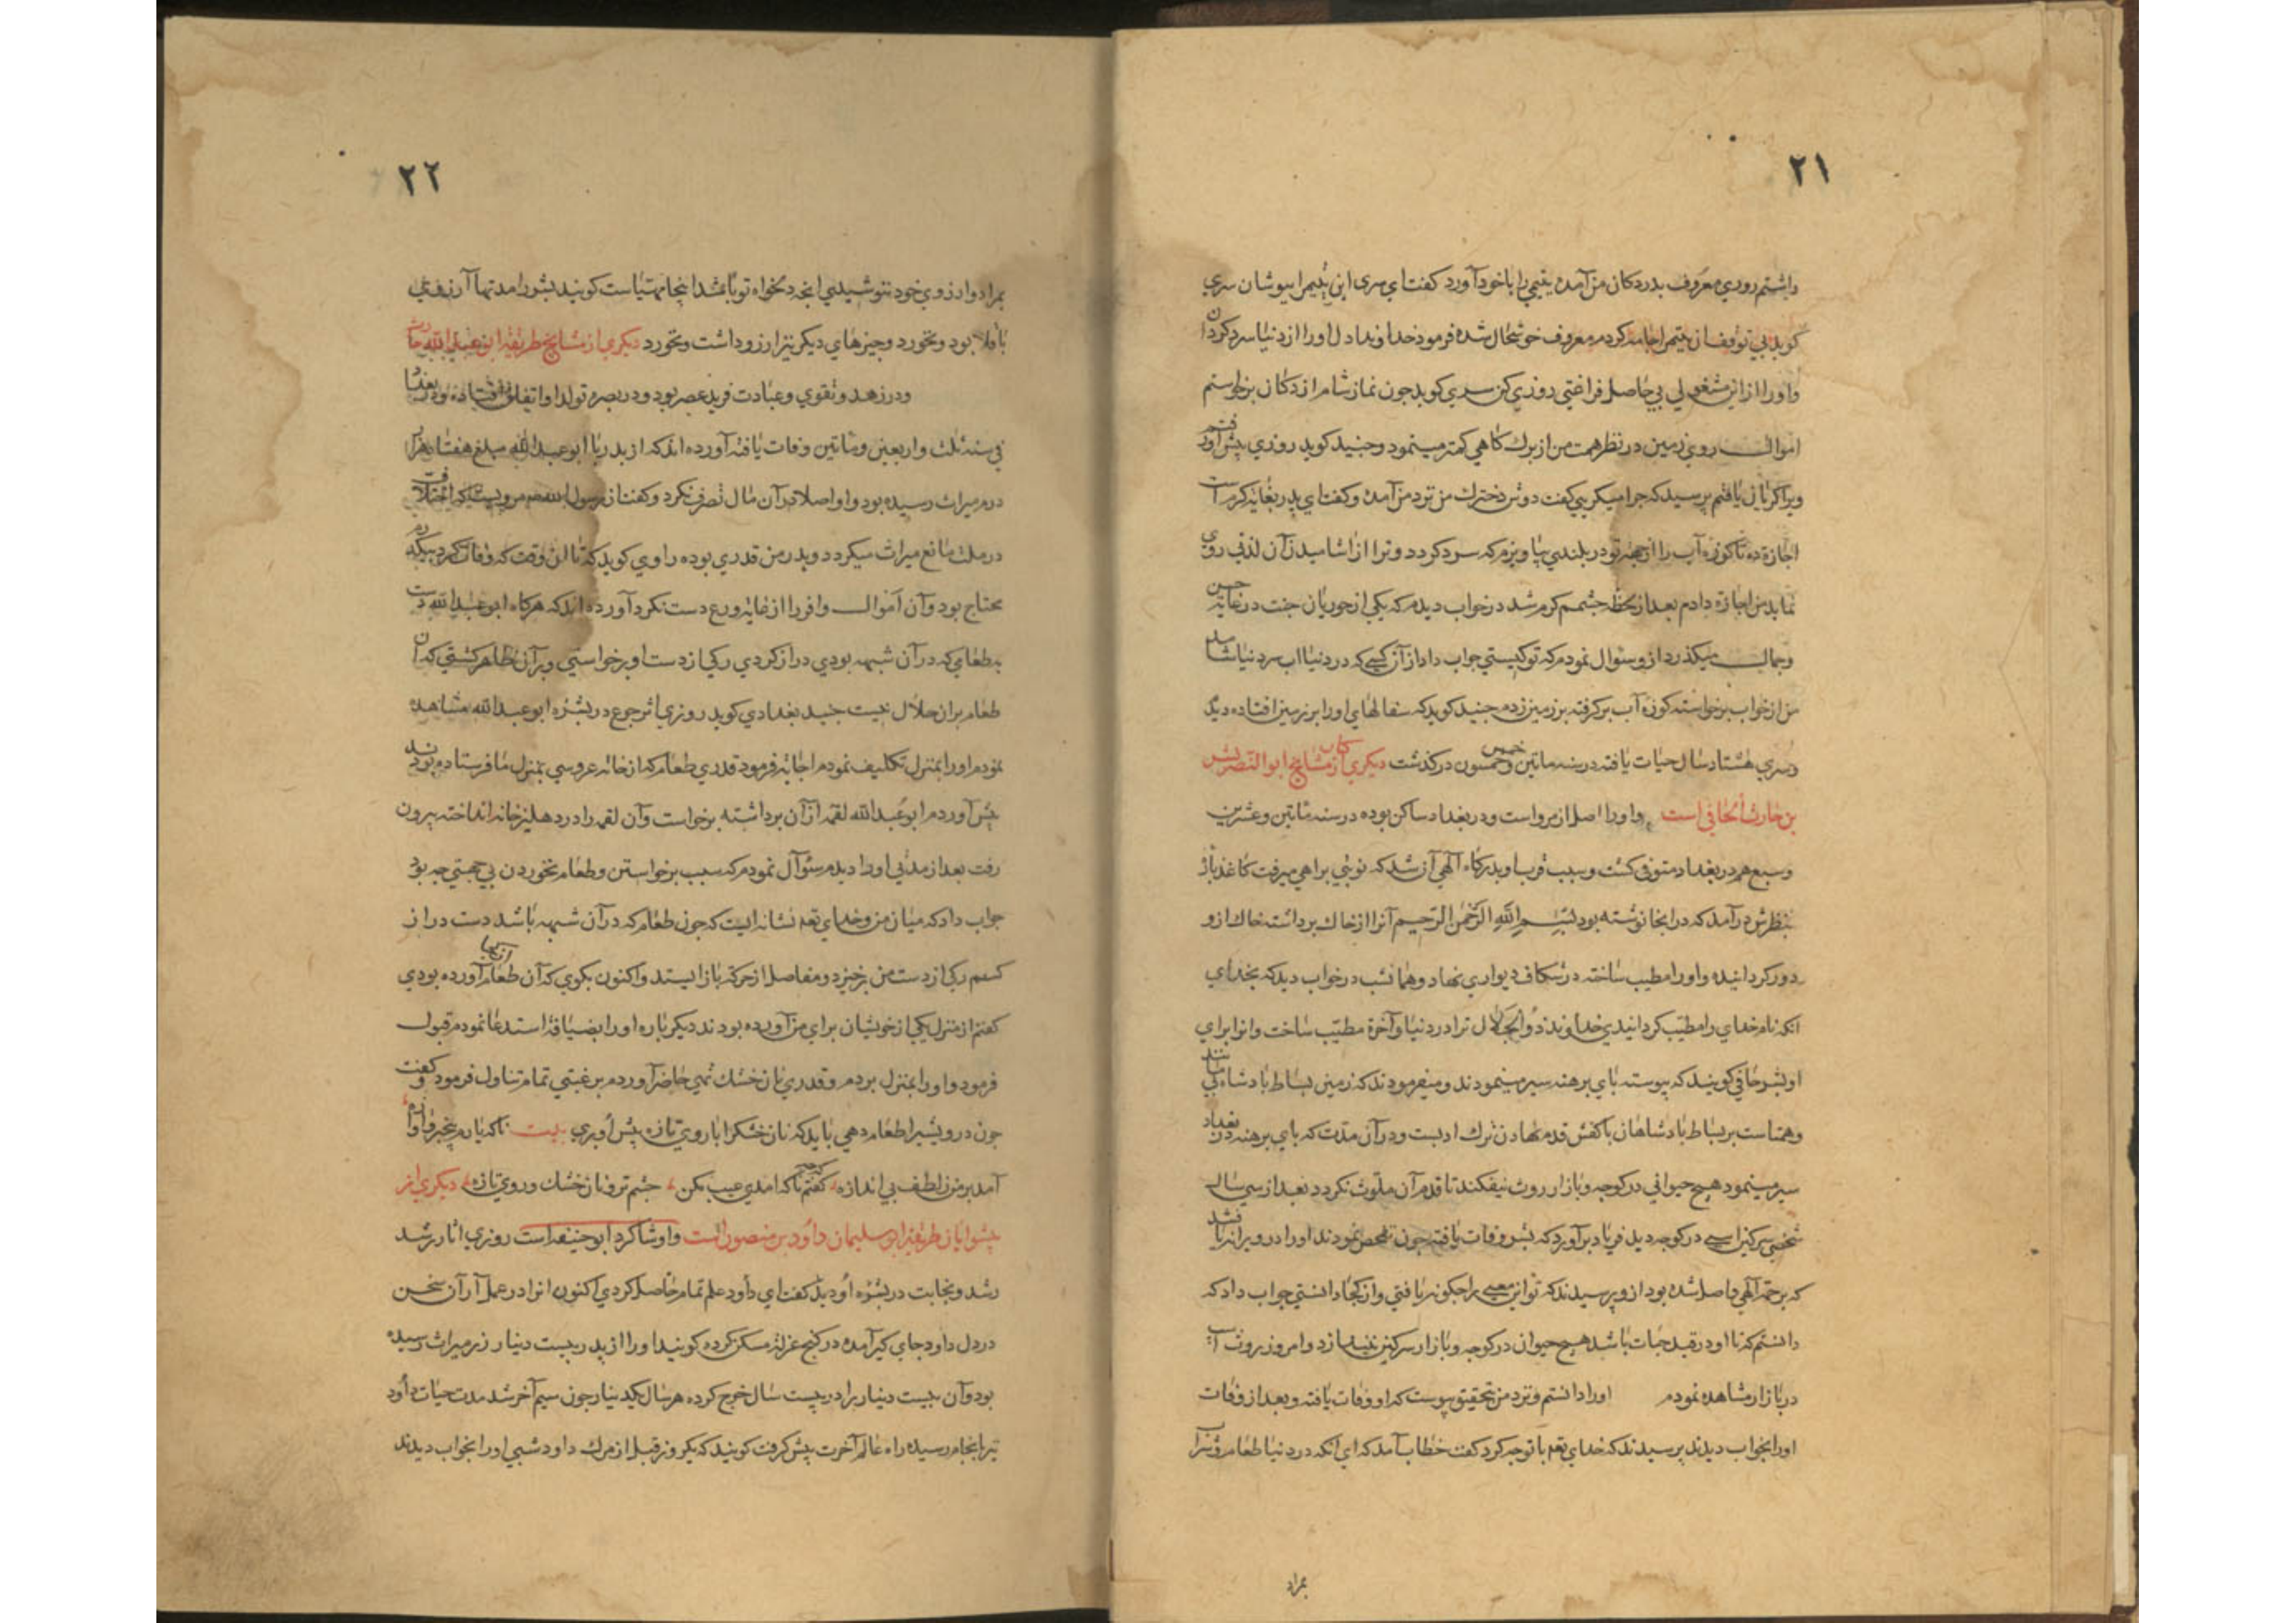 ٢١
داشتم روزي معروف بدر دكان من آمده يتيمي را با خود آورد كفت اي سري اين يتيم را بپوشان سري
كويد بي توقف آن يتيم را جامه كردم معروف خوشحال شده فرمود خداوند دل او را از دنيا سرد كرداند
واو را از اين مشغولي بي حاصل فراغتي روزي كن سري كويد چون نماز شام از دكان برخواستم
اموال روي زمين در نظر همت من از برك كاهي كمتر مينمود وجنيد كويد روزي پيش او رفتم
ويرا كريان يافتم پرسيدم كه چرا ميكريي كفت دوش دخترك من نزد من آمده وكفت اي پدر بغايه كرم است
اجازه ده تا كوزه آب را از جهة تو در بلندي بياويزم كه سرد كردد وترا از آشاميدن آن لذتي روي
نمايد من اجازه دادم بعد از لحظه چشمم كرم شد در خواب ديدم كه يكي از حوريان جنت در غايه حسن
وجمال ميكذرد از و سئوال نمودم كه تو كيستي جواب داد از آن كسي كه در دنيا آب سرد نياشامد
من از خواب برخواسته كوزه آب بركرفته بر زمين زدم جنيد كويد كه سفالهاي او را بر زمين افتاده ديدم
وسري هشتاد سال حيات يافته در سنه ماتين وخمس وخمسون دركذشت ديكري از كبار مشايخ ابو النصر بشر
بن حارث الحافي است واو را اصل از مرو است ودر بغداد ساكن بوده در سنه ماتين وعشرين
وسبع هم در بغداد متوفي كشت وسبب قرب او بدركاه آلهي آن شد كه نوبتي براهي ميرفت كاغذ پاره
بنظرش درآمد كه در انجا نوشته بود بسم الله الرحمن الرحيم آنرا از خاك برداشته خاك از و
دور كردانيده واو را مطيب ساخته در شكاف ديواري نهاد وهمانشب در خواب ديد كه بخداي
انكه نام خداي را مطيب كردانيدي خداوند ذو الجلال ترا در دنيا وآخرة مطيب ساخت وانرا براي
او بشر حافي كويند كه پيوسته پاي برهنه سير مينمودند وميفرمودند كه زمين بساط پادشاه بي مانند
وهمتا ست بر بساط پادشاهان با كفش قدم نهادن ترك ادبست ودر آن مدت كه پاي برهنه در بغداد
سير مينمود هيچ حيواني در كوچه وبازار روث نيفكند تا قدم آن ملوث نكردد بعد از سي سال
شخصي سركين اسپي در كوچه ديد فرياد برآورد كه بشر وفات يافته چون تفحص نمودند او را در ويرانه يافتند
كه برحمة آلهي واصل شده بود از و پرسيدند كه تو اين معني را چكونه يافتي واز كجا دانستي جواب داد كه
دانستم كه تا او در قيد حيات باشد هيچ حيوان در كوچه وبازار سركين نيندازد وامروز روث اسپ
در بازار مشاهده نمودم اورا دانستم ونزد من تحقيق پيوست كه او وفات يافته وبعد از وفات
اورا بخواب ديدند پرسيدند كه خداي تعم با تو چه كرد كفت خطاب آمد كه اي انكه در دنيا طعام وشراب
بمراد
٢٢
بمراد وارزوي خود ننوشيدي انچه دلخواه تو باشد اينجا مهياست كويند بشر را مدتها آرزوي
باقلا بود ونخورد وچيزهاي ديكر نيز ارزو داشت ونخورد ديكري از مشايخ طريقة ابو عبد الله حارث
ودر زهد وتقوي وعبادت فريد عصر بود ودر بصره تولد او اتفاق افتاده ودر بغداد
في سنه ثلث واربعين وماتين وفات يافته آورده اند كه از پدر با ابو عبد الله مبلغ هفتاد هزار
درم ميراث رسيده بود واو اصلا در آن مال تصرف نكرد وكفت از رسول الله صم مرويست كه اختلاف
در ملت مانع ميراث ميكردد وپدر من قدري بوده راوي كويد كه تا ان وقت كه وفات كرد بيكدرم
محتاج بود وآن اموال وافر را از غايه ورع دست نكرد آورده اند كه هركاه ابو عبد الله دست
به طعامي كه در آن شبهه بودي دراز كردي ركي از دست او برخواستي وبر آن ظاهر كشتي كه ان
طعام بر ان حلال نيست جنيد بغدادي كويد روزي اثر جوع در بشره ابو عبد الله مشاهده
نمودم اورا بمنزل تكليف نمودم اجابة فرمود قدري طعام كه از خانه عروسي بمنزل ما فرستاده بودند
پيش آوردم ابو عبد الله لقمه از آن برداشته برخواست وآن لقمه را در دهليز خانه انداخته بيرون
رفت بعد از مدتي اورا ديدم سئوآل نمودم كه سبب برخواستن وطعام نخوردن بي جهتي چه بود
جواب داد كه ميان من وخداي تعم نشانه ايست كه چون طعام كه در آن شبهه باشد دست دراز
كنم ركي از دست من برخيزد ومفاصل از حركة باز ايستد واكنون بكوي كه آن طعام از كجا آورده بودي
كفتم از منزل يكي از خويشان براي من آورده بودند ديكر باره او را بضيافة استدعا نمودم قبول
فرمود واورا بمنزل بردم وقدري نان خشك تهي حاضر آوردم برغبتي تمام تناول فرمود وكفت
چون درويشي را طعام دهي بايد كه نان خشك را با روي تازه پيش اوبري بيت ناكه يارم بيخبر وآوازه
آمد بر من ز لطف بي اندازه كفتم كه چه ناكه امدي عيب مكن چشم تر ونان خشك وروي تازه ديكري از
پيشوايان طريقة ابو سليمان داود بن منصور است واو شاكرد ابو حنيفه است روزي اثار رشد
رشد ونجابت در بشره او ديد كفت اي داود علم تمام حاصل كردي اكنون انرا در عمل آر آن سخن
در دل داود جاي كير آمده در كنج عزلة مسكن كرده كويند اورا از پدر بيست دينار زر ميراث رسيده
بود وآن بيست دينار را در بيست سال خرج كرده هر سال يكدينار چون سيم آخر شد مدت حيات داود
نيز بانجام رسيده راه عالم آخرت پيش كرفت كويند كه يكروز قبل از مرك داود شبي اورا بخواب ديدند